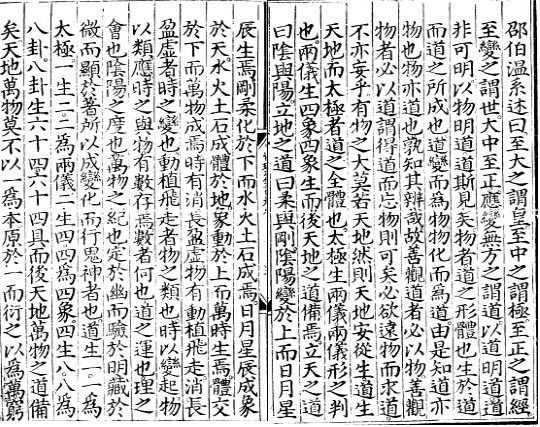 邵伯温系述曰至大之謂皇至中之謂極至正之謂經
至變之謂世大中至正應變無方之謂道以道明道道
非可明以物明道道斯見矣物者道之形體也生於道
而道之所成也道變而為物物化而為道由是知道亦
物也物亦道也孰知其辨哉故善觀道者必以物善觀
物者必以道謂得道而忘物則可矣必欲遠物而求道
不亦妄乎有物之大莫若天地然則天地安從生道生
天地而太極者道之全體也太極生兩儀兩儀形之判
也兩儀生四象四象生而後天地之道備焉立天之道
曰陰與陽立地之道曰柔與剛陰陽變於上而日月星
辰生焉剛柔化於下而水火土石成焉日月星辰成象
於天水火土石成體於地象動於上而萬時生焉體交
於下而萬物成焉時有消長盈虛物有動植飛走消長
盈虛者時之變也動植飛走者物之類也時以變起物
以類應時之與物有數存焉數者何也道之運也理之
會也陰陽之度也萬物之紀也定於幽而驗於明藏於
微而顯於著所以成變化而行鬼神者也道生一一為
太極一生二二為兩儀二生四四為四象四生八八為
八卦八卦生六十四六十四具而後天地萬物之道備
矣天地萬物莫不以一為本原於一而衍之以為萬窮